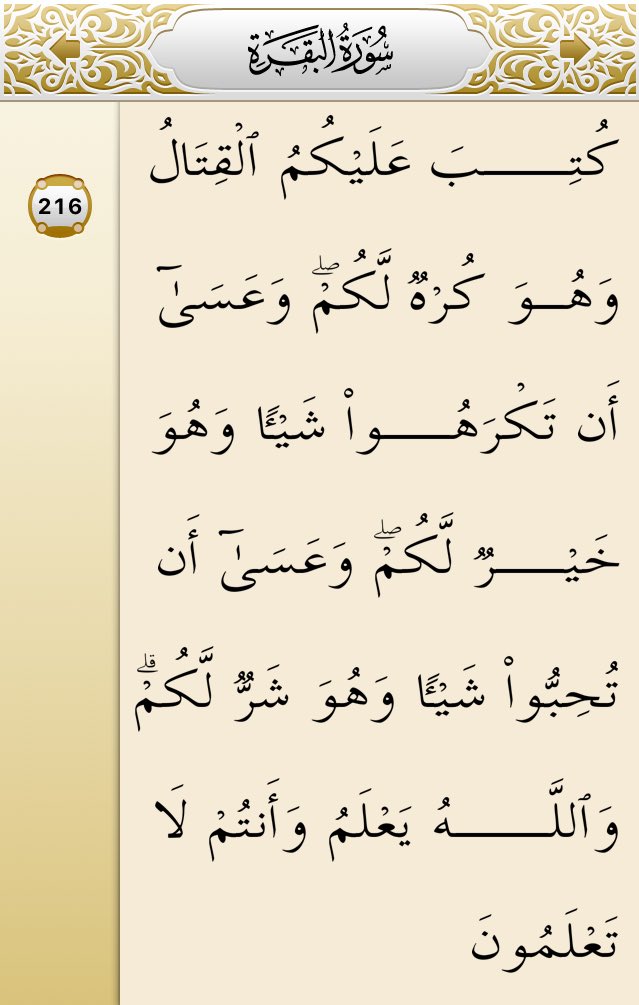 سُورَةُ البَقَرَةِ
216
كُتِـــــبَ عَلَيْكُمُ ٱلْقِتَالُ
وَهُـوَ كُرْهٌ لَّكُمْ ۖ وَعَسَىٰٓ
أَن تَكْرَهُـــوا۟ شَيْـًٔا وَهُوَ
خَيْـــرٌ لَّكُمْ ۖ وَعَسَىٰٓ أَن
تُحِبُّوا۟ شَيْـًٔا وَهُوَ شَرٌّ لَّكُمْ ۗ
وَٱللَّـــهُ يَعْلَمُ وَأَنتُمْ لَا
تَعْلَمُونَ